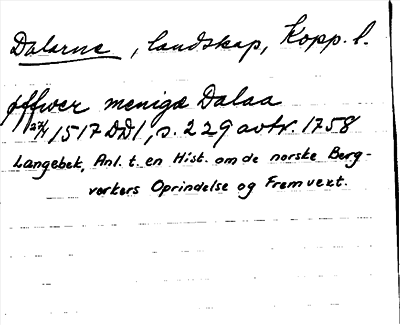 Dalarne, landskap, Kopp. l.
øffwer menigæ Dalaa
27/4 1517 DD1, s. 229 avtr. 1758
Langebek, Anl. t. en Hist. om de norske Berg-
verkers Oprindelse og Fremvext.